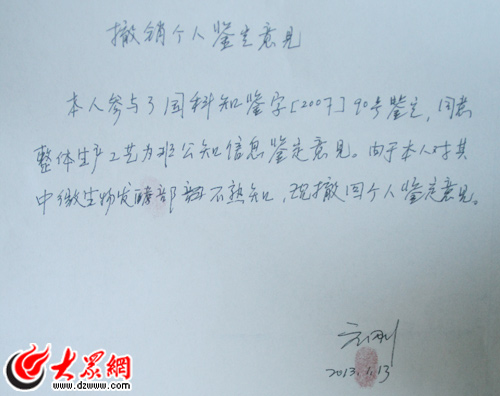 撤销个人鉴定意见
本人参与了国科知鉴字[2007]90号鉴定,同意
整体生产工艺为非公知信息鉴定意见。由于本人对其
中微生物发酵部 不熟知,现撤回个人鉴定意见。
2013.1.13
大众網
www.dzwww.com